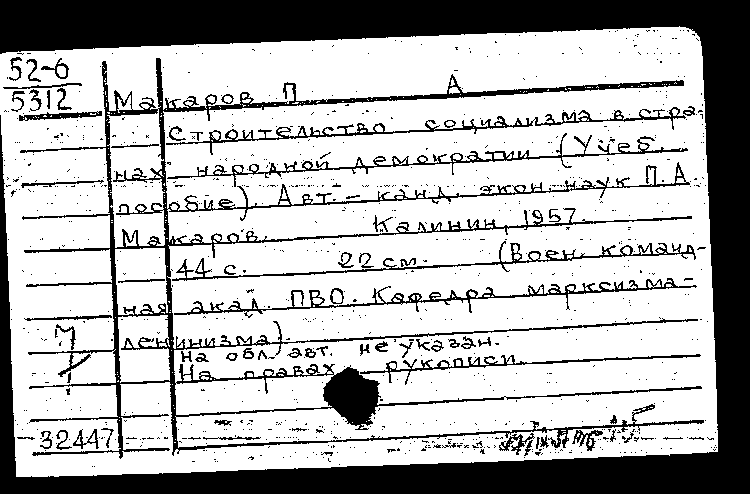 52-6
5312
Макаров, П А
Строительство социализма в стра-
нах народной демократии (Учеб.
пособие). Авт. – канд. экон. наук П.А.
Макаров. Калинин, 1957.
44 с. 22 см. (Воен. команд-
ная акад. ПВО. Кафедра марксизма-
ленинизма).
На обл. авт. не указан.
На правах рукописи.
32447